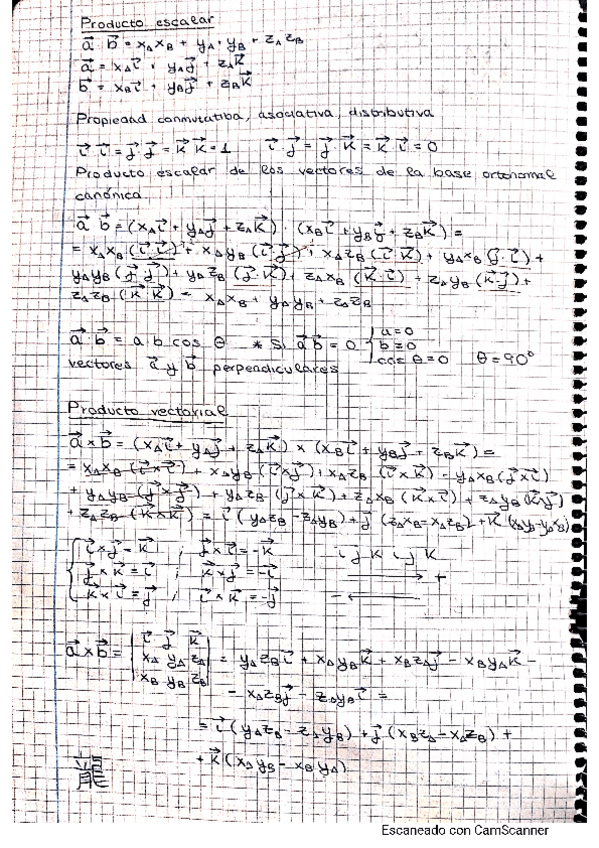 Producto escalar
a⃗ b⃗ = xₐx_B + yₐ·y_B + zₐz_B
a⃗ = xₐi⃗ + yₐj⃗ + zₐk⃗
b⃗ = x_Bi⃗ + y_Bj⃗ + z_Bk⃗
Propiedad conmutatiba, asociativa, distributiva
i⃗·i⃗ = j⃗·j⃗ = k⃗ k⃗ = 1 i⃗·j⃗ = j⃗·k⃗ = k⃗·i⃗ = 0
Producto escalar de los vectores de la base ortonomal
canónica
a⃗ b⃗ = (xₐi⃗ + yₐj⃗ + zₐk⃗) · (x_Bi⃗ + y_Bj⃗ + z_Bk⃗) =
= xₐx_B (i⃗·i⃗) + xₐy_B (i⃗·j⃗) + xₐz_B (i⃗·k⃗) + yₐx_B (j⃗·i⃗) +
yₐy_B (j⃗·j⃗) + yₐz_B (j⃗·k⃗) + zₐx_B (k⃗·i⃗) + zₐy_B (k⃗·j⃗) +
zₐz_B (k⃗·k⃗) = xₐx_B + yₐy_B + zₐz_B
a⃗·b⃗ = a b cos θ * Si a⃗ b⃗ = 0 { a = 0
b = 0
cos θ = 0 θ = 90°
vectores a⃗ y b⃗ perpendiculares
Producto vectorial
a⃗ × b⃗ = (xₐi⃗ + yₐj⃗ + zₐk⃗) × (x_Bi⃗ + y_Bj⃗ + z_Bk⃗) =
= xₐx_B (i⃗×i⃗) + xₐy_B (i⃗×j⃗) + xₐz_B (i⃗×k⃗) - yₐx_B (j⃗×i⃗)
+ yₐy_B (j⃗×j⃗) + yₐz_B (j⃗×k⃗) + zₐx_B (k⃗×i⃗) + zₐy_B (k⃗×j⃗)
+ zₐz_B (k⃗×k⃗) = i⃗ (yₐz_B - zₐy_B) + j⃗ (zₐx_B - xₐz_B) + k⃗ (xₐy_B - yₐx_B)
i⃗×j⃗ = k⃗ ; j⃗×i⃗ = -k⃗ i j k i j k
j⃗×k⃗ = i⃗ ; k⃗×j⃗ = -i⃗ → +
k⃗×i⃗ = j⃗ ; i⃗×k⃗ = -j⃗ - ←
a⃗×b⃗ = | i⃗ j⃗ k⃗ |
| xₐ yₐ zₐ | = yₐz_Bi⃗ + xₐy_Bk⃗ + x_Bzₐj⃗ - x_Byₐk⃗ -
| x_B y_B z_B |
- xₐz_Bj⃗ - zₐy_Bi⃗ =
= i⃗ (yₐz_B - zₐy_B) + j⃗ (x_Bzₐ - xₐz_B) +
+ k⃗ (xₐy_B - x_Byₐ)
龍
Escaneado con CamScanner